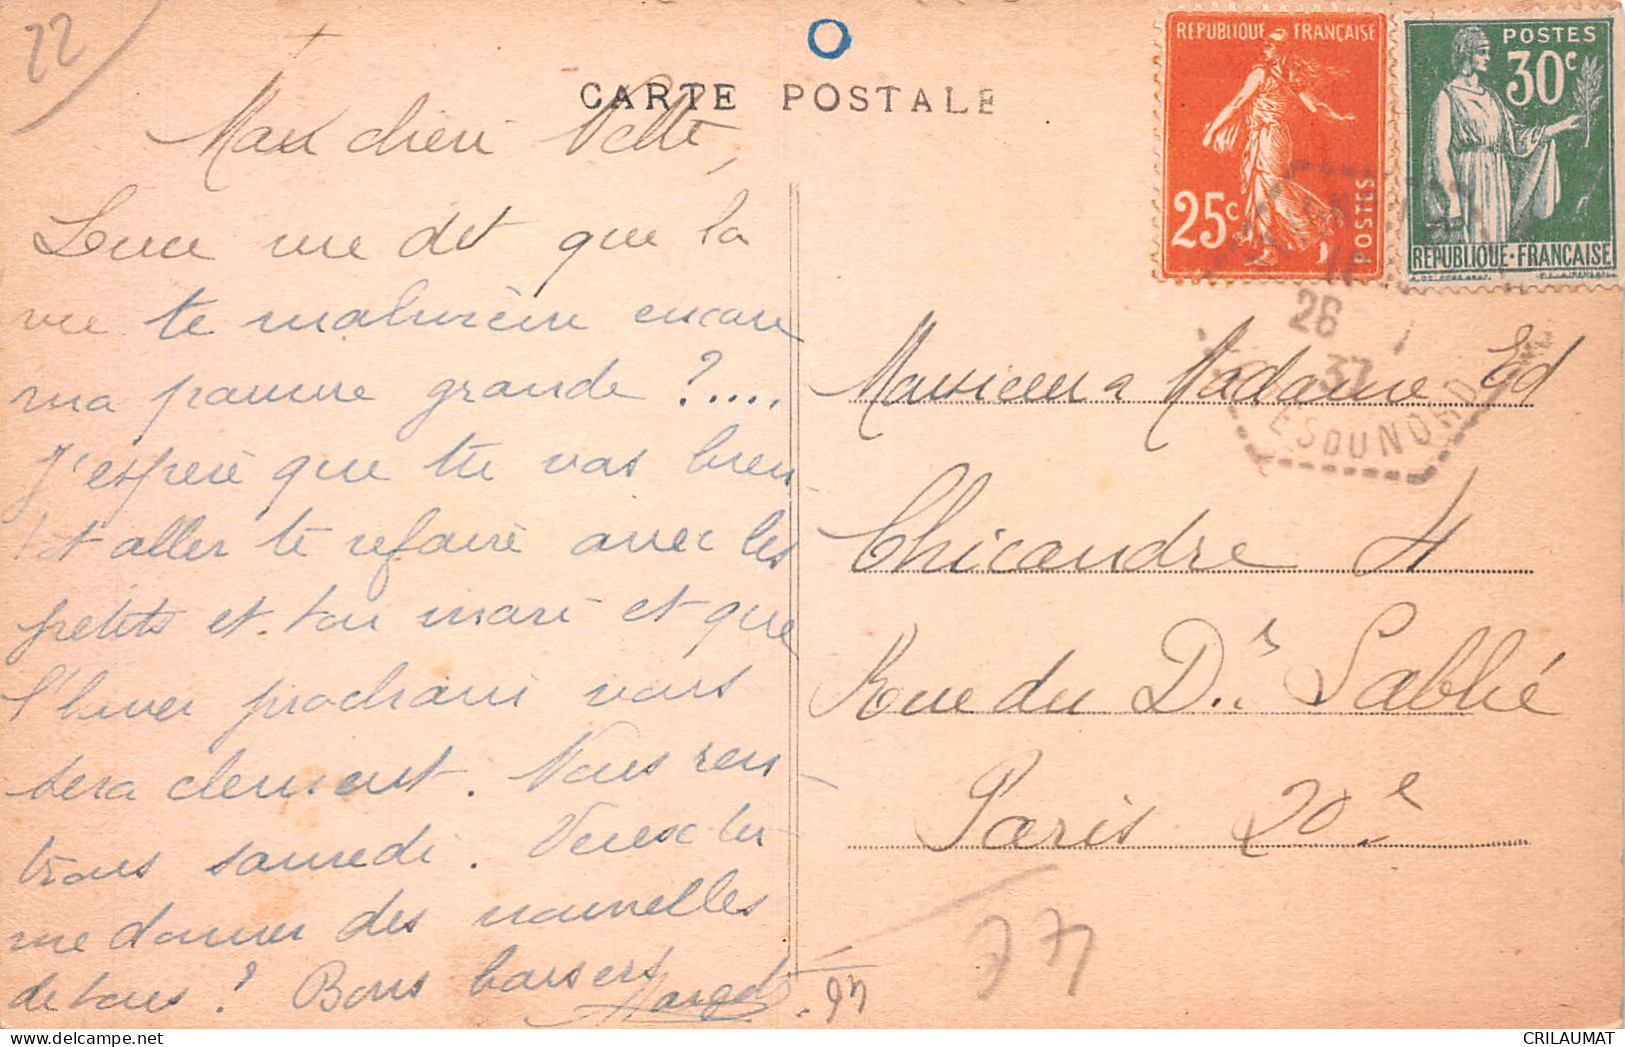 22
CARTE POSTALE
REPUBLIQUE FRANÇAISE
25c
POSTES
POSTES
30c
REPUBLIQUE·FRANÇAISE
26
37
ESDUNORD
Mon chéri
me dit que la
vie te malmène encore
ma pauvre grande ?.....
J'espère que tu vas bien-
tôt aller te refaire avec les
petits et ton mari et que
l'hiver prochain vous
sera clément. Nous ren-
trons samedi. Veux tu
me donner des nouvelles
de tous ? Bons baisers
Margot
Monsieur Madame Ed
Chicandre 4
Rue du Dr
Paris 20e
77
CRILAUMAT